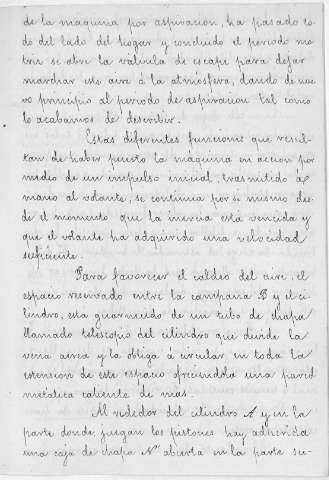 de la máquina por aspiracion, ha pasado to-
do del lado del hogar y concluido el periodo mo-
triz se abre la valvula de escape para dejar
marchar este aire á la atmósfera, dando de nue-
vo principio al periodo de aspiracion tal como
lo acabamos de describir.
Estas diferentes funciones que resul-
tan de haber puesto la máquina en accion por
medio de un impulso inicial, trasmitido á
mano al volante, se continua por si mismo des-
de el momento que la inercia está vencida y
que el volante ha adquirido una velocidad
suficiente.
Para favorecer el caldeo del aire, el
espacio reservado entre la campana B y el ci-
lindro, esta guarnecido de un tubo de chapa
llamado telescopio del cilindro que divide la
vena aerea y la obliga á circular en toda la
estension de este espacio ofreciendola una pared
metalica caliente de mas.
Al rededor del cilindro A y en la
parte donde juegan los pistones hay adherida
una caja de chapa N abierta en la parte su-